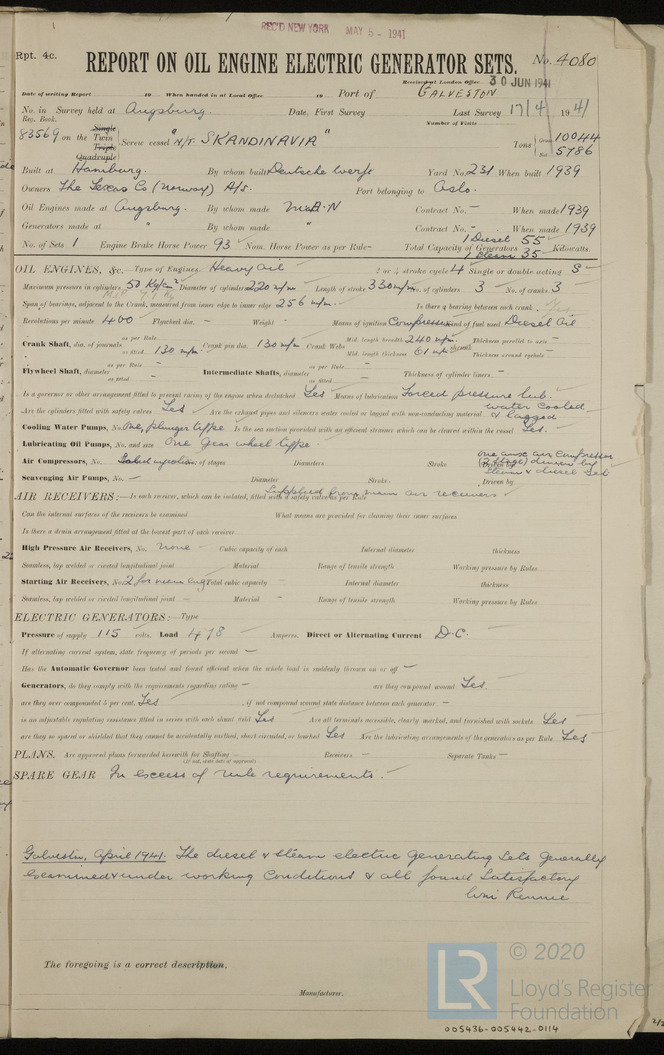 REC'D NEW YORK MAY 5 - 1941
Rpt. 4c.
REPORT ON OIL ENGINE ELECTRIC GENERATOR SETS.
No. 4080
Received at London Office 30 JUN 1941
Date of writing Report 19 When handed in at Local Office 19 Port of GALVESTON
No. in Survey held at Augsburg. Date, First Survey Last Survey 17/4 1941
Reg. Book. Number of Visits
83569 on the Single Twin Triple Quadruple Screw vessel "M/T. SKANDINAVIA" Tons Gross 10044 Net 5786
Built at Hamburg. By whom built Deutsche Werft Yard No. 231 When built 1939
Owners The Texas Co (Norway) A/S. Port belonging to Oslo.
Oil Engines made at Augsburg. By whom made M.A.N Contract No. - When made 1939
Generators made at " By whom made " Contract No. - When made 1939
No. of Sets 1 Engine Brake Horse Power 93 Nom. Horse Power as per Rule - Total Capacity of Generators 1 Diesel 55 1 Steam 35 Kilowatts.
OIL ENGINES, &c. Type of Engines Heavy Oil 2 or 4 stroke cycle 4 Single or double acting S
Maximum pressure in cylinders 50 Kg/cm² Diameter of cylinders 220 m/m Length of stroke 330 m/m No. of cylinders 3 No. of cranks 3
Span of bearings, adjacent to the Crank, measured from inner edge to inner edge 256 m/m. Is there a bearing between each crank
Revolutions per minute 400 Flywheel dia. - Weight - Means of ignition Compression Kind of fuel used Diesel Oil
Crank Shaft, dia. of journals as per Rule - as fitted 130 m/m Crank pin dia. 130 m/m Crank Webs Mid. length breadth 240 m/m. Mid. length thickness 61 m/m Thickness parallel to axis - Thickness around eyehole -
Flywheel Shaft, diameter as per Rule - as fitted - Intermediate Shafts, diameter as per Rule - as fitted - Thickness of cylinder liners -
Is a governor or other arrangement fitted to prevent racing of the engine when declutched Yes Means of lubrication Forced pressure lub.
Are the cylinders fitted with safety valves Yes Are the exhaust pipes and silencers water cooled or lagged with non-conducting material water cooled & lagged
Cooling Water Pumps, No. One, plunger type. Is the sea suction provided with an efficient strainer which can be cleared within the vessel Yes.
Lubricating Oil Pumps, No. and size One Gear wheel type.
Air Compressors, No. Solid injection No. of stages Diameters Stroke Driven by one aux. air compressor (2 stage) driven by steam & diesel set
Scavenging Air Pumps, No. - Diameter Stroke Driven by
AIR RECEIVERS:—Is each receiver, which can be isolated, fitted with a safety valve as per Rule Supplied from main air receivers
Can the internal surfaces of the receivers be examined What means are provided for cleaning their inner surfaces
Is there a drain arrangement fitted at the lowest part of each receiver
High Pressure Air Receivers, No. none - Cubic capacity of each Internal diameter thickness
Seamless, lap welded or riveted longitudinal joint Material Range of tensile strength Working pressure by Rules
Starting Air Receivers, No. 2 for main eng Total cubic capacity - Internal diameter thickness
Seamless, lap welded or riveted longitudinal joint Material - Range of tensile strength Working pressure by Rules
ELECTRIC GENERATORS:—Type
Pressure of supply 115 volts. Load 478 Amperes. Direct or Alternating Current D.C.
If alternating current system, state frequency of periods per second -
Has the Automatic Governor been tested and found efficient when the whole load is suddenly thrown on or off -
Generators, do they comply with the requirements regarding rating - are they compound wound Yes.
are they over compounded 5 per cent. Yes , if not compound wound state distance between each generator -
is an adjustable regulating resistance fitted in series with each shunt field Yes Are all terminals accessible, clearly marked, and furnished with sockets Yes
are they so spaced or shielded that they cannot be accidentally earthed, short circuited, or touched Yes Are the lubricating arrangements of the generators as per Rule Yes
PLANS. Are approved plans forwarded herewith for Shafting - Receivers - Separate Tanks -
(If not, state date of approval)
SPARE GEAR In excess of rule requirements.
Galveston, April 1941. The diesel & steam electric generating sets generally
examined & under working conditions & all found satisfactory
Wm Rennie
The foregoing is a correct description,
Manufacturer.
© 2020
LR
Lloyd's Register
Foundation
005436-005442-0114